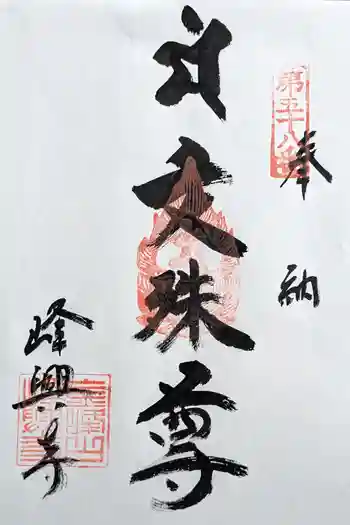 第五十八番
奉納
文殊尊
峰興寺